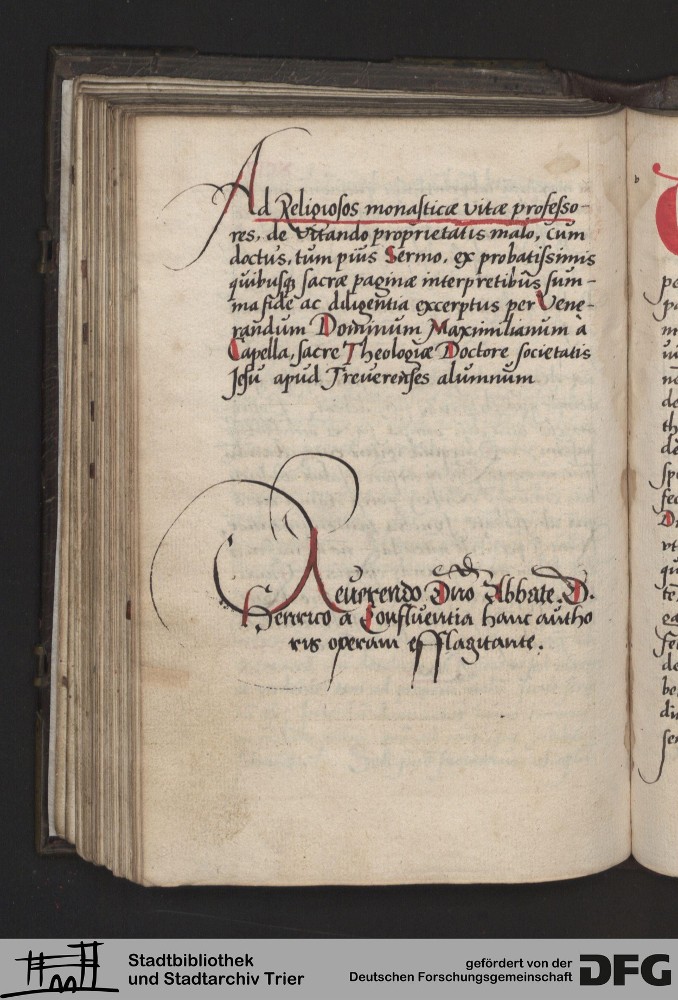 Ad Religiosos monasticæ vitæ professo-
res, de vitando proprietatis malo, cum
doctus, tum pius Sermo, ex probatissimis
quibusq; sacræ paginæ interpretibus sum-
ma fide ac diligentia excerptus per Vene-
randum Dominum Maximilianum à
Capella, sacre Theologiæ Doctore societatis
Jesu apud Treuerenses alumnum
Reuerendo Dno Abbate D.
Henrico a Confluentia hanc autho
ris operam efflagitante.
b
Stadtbibliothek
und Stadtarchiv Trier
gefördert von der
Deutschen Forschungsgemeinschaft
DFG